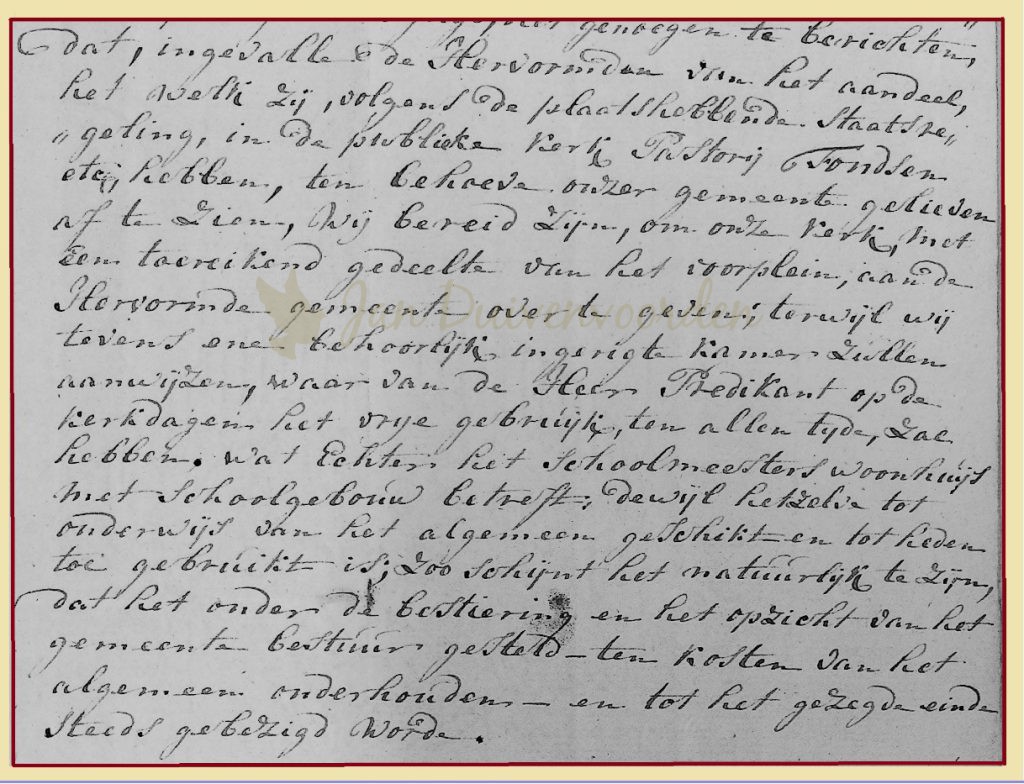 genoegen te berichten,
dat, ingevalle de Hervormden van het aandeel,
het welk zij, volgens de plaatshebbende Staatsre„
„geling, in de publieke Kerk Pastorij Fondsen
etc, hebben, ten behoeve onzer gemeente gelieven
af te Zien, Wij bereid Zijn, om onze Kerk, met
een toereikend gedeelte van het voorplein, aan de
Hervormde gemeente over te geven; terwijl wij
tevens ene behoorlijk ingerigte Kamer Zullen
aanwijzen, waar van de Heer Predikant op de
Kerkdagen het vrije gebruijk, ten allen tyde, Zoe
hebben. Wat Echter het Schoolmeesters woonhuijs
met Schoolgebouw betreft; dewijl hetzelve tot
onderwijs van het algemeen geschikt en tot heden
toe gebruikt is; Zoo schijnt het natuurlijk te Zijn,
dat het onder de bestiering en het opzicht van het
gemeente bestuur gesteld – ten Kosten van het
algemeen onderhouden – en tot het gezegde einde
Steeds gebezigd Worde.
Jan Duivenvoorden